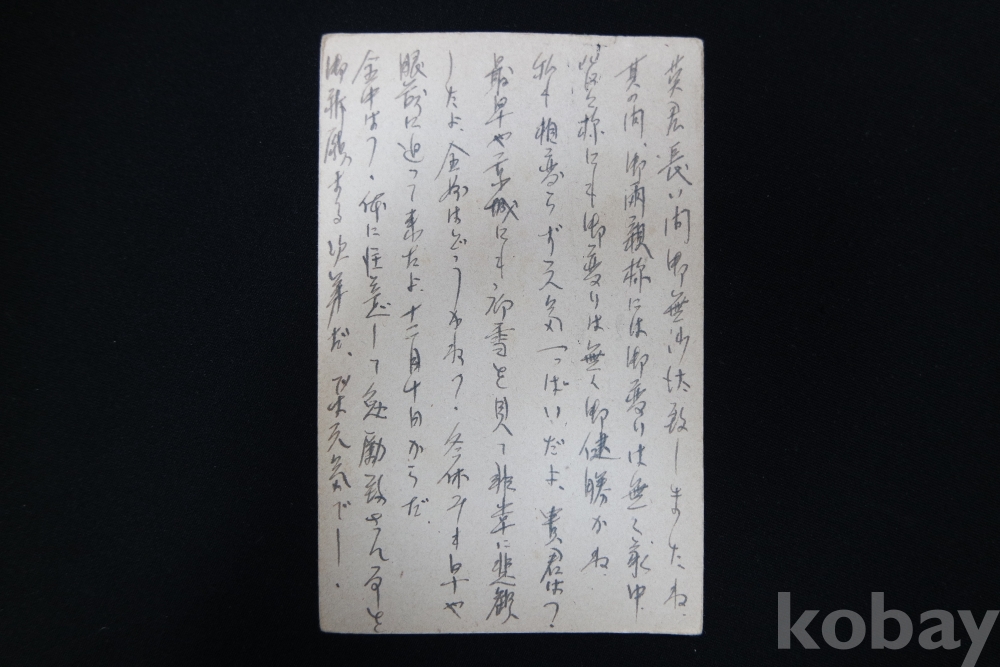 英君長い間御無沙汰致しましたね.
其の間、御両親様には御変りは無く家中
皆々様にも御変りは無く御健勝かね.
私も相変らず元気一っぱいだよ、貴君は?
最早や京城にも初雪を見て非常に悲観
したよ、金はどうかね?冬休みも早や
眼前に迫って来たよ、十二月十日からだ.
金中は?体に注意して勉励致さん事を
御祈願する次第だ、では元気で—.
kobay